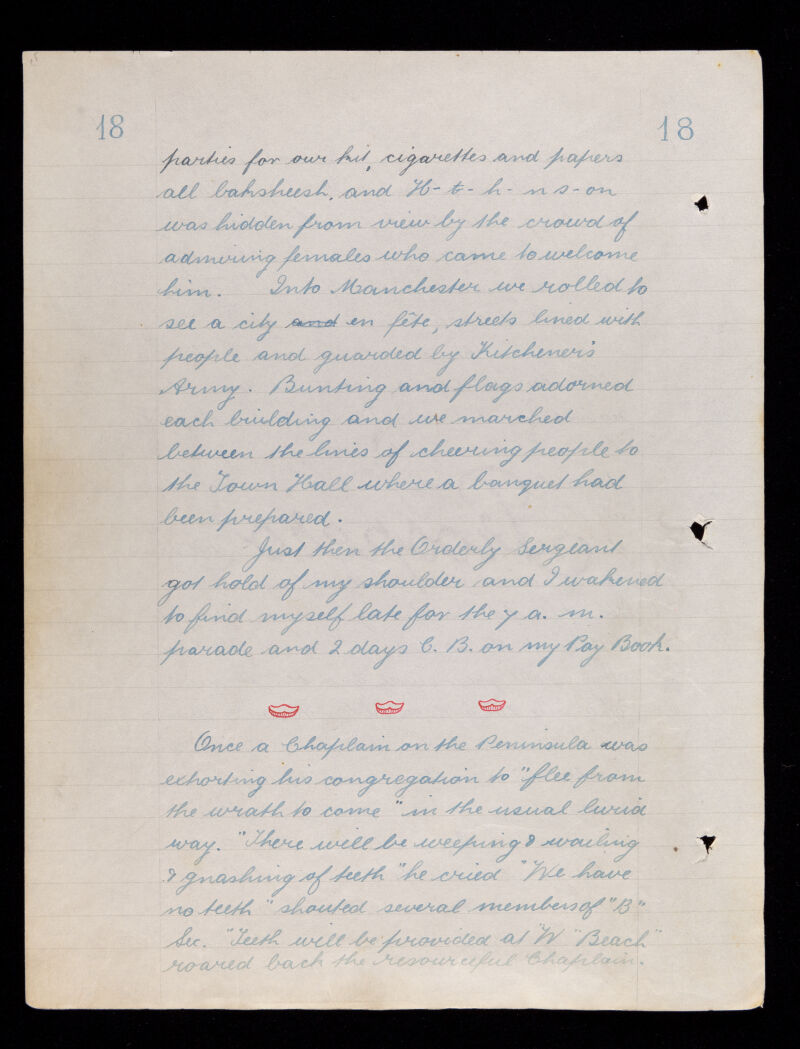 18 18
parties for our kit, cigarettes and papers
all baksheesh, and H- t- h- n s- on
was hidden from view by the crowd of
admiring females who came to welcome
him. Into Manchester we rolled to
see a city and en fête, streets lined with
people and guarded by Kitchener's
Army. Bunting and flags adorned
each building and we marched
between the lines of cheering people to
the Town Hall where a banquet had
been prepared.
Just then the Orderly Sergeant
got hold of my shoulder and I wakened
to find myself late for the 7 a. m.
parade and 2 days C. B. on my Pay Book.
Once a Chaplain on the Peninsula was
exhorting his congregation to "flee from
the wrath to come" in the usual lurid
way. "There will be weeping & wailing
& gnashing of teeth" he cried "We have
no teeth" shouted several members of "B"
Sec. "Teeth will be provided at "W" Beach"
roared back the resourceful Chaplain.